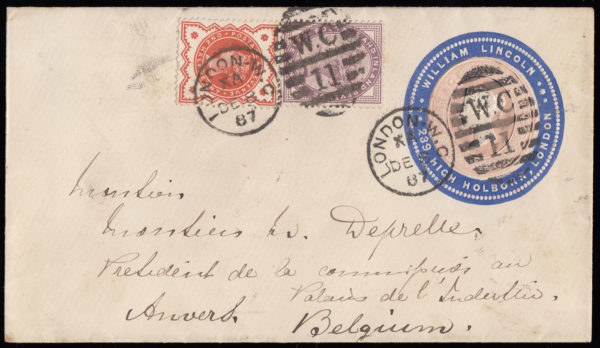 POSTAGE
LONDON.W.C
XA
DE
87
W.C
11
WILLIAM LINCOLN
239, HIGH HOLBORN, LONDON
LONDON.W.C
XA
DE
87
W.C
11
Monsieur
Monsieur
President de la au
Palais de l'Industrie.
Anvers.
Belgium.